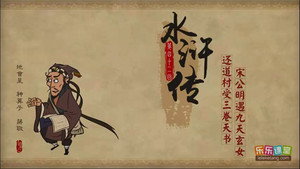 水浒传
宋公明遇九天玄女
还道村受三卷天书
地会星
神算子
蒋敬
乐乐课堂
leleketang.com